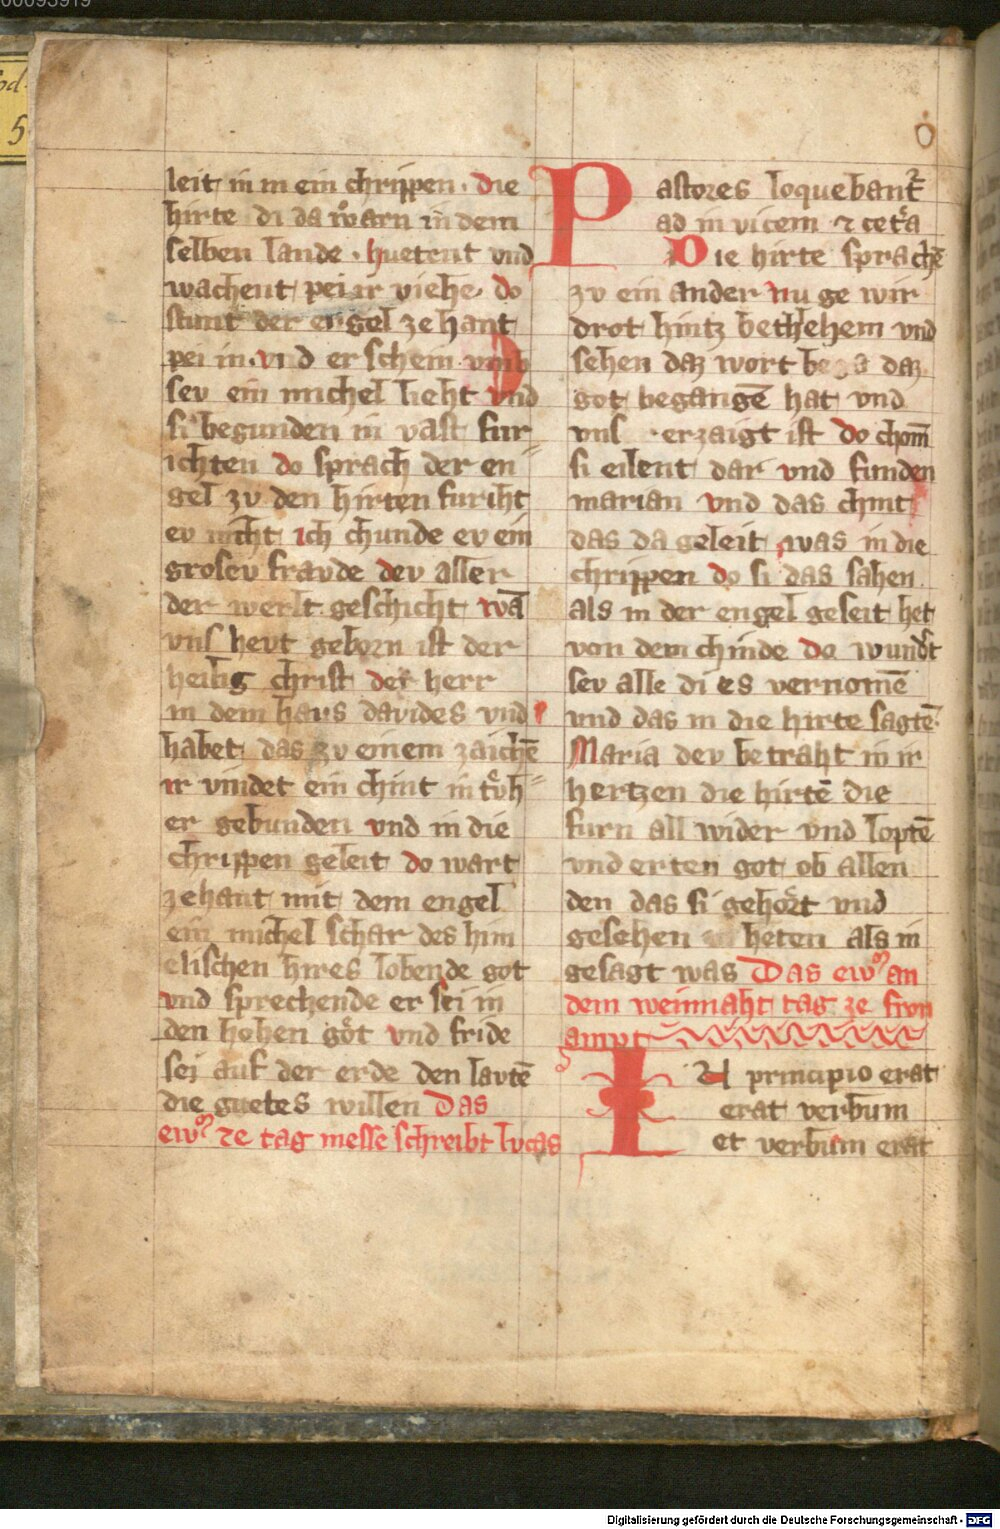 leit in in ein chrippen. die
hirte di da warn in dem
selben lande. huetent vnd
wachent pei ir viehe. do
stunt der engel zehant
pei in. vnd er schein vmb
sev ein michel lieht vnd
si begunden in vast fur-
ichten do sprach der en-
gel zv den hirten furiht
ev nicht ich chunde ev ein
grosev fravde dev aller
der werlt geschicht wā
vns hevt geborn ist der
heilig christ der herr
in dem havs davides vnd
habet das zv einem zaichē
ir vindet ein chint in tvͦh-
er gebunden vnd in die
chrippen geleit do wart
zehant mit dem engel
ein michel schar des him
elischen hires lobende got
vnd sprechende er sei in
den hohen got vnd fride
sei auf der erde den lavtē
die guetes willen Das
ew ze tag messe schreibt lvcas
o
Pastores loquebant
ad in vicem ⁊ cetᵃa
Die hirte sprachē
zv ein ander nu ge wir
drot hintz bethehem vnd
sehen daz wort daz
got begangē hat vnd
vns erzaigt ist do chom̄
si eilent dar vnd funden
marian vnd das chint
das da geleit was in die
chrippen do si das sahen
als in der engel geseit het
von dem chinde do wundᵉt
sev alle di es vernomē
vnd das in die hirte sagtē.
Maria dev betraht in ir
hertzen die hirtē die
furn all wider vnd loptē
vnd erten got ob allen
den das si gehort vnd
gesehen heten als in
gesagt was Das ew an
dem weinnaht tag ze fron
ampt
In principio erat
erat verbum
et verbum erat
Digitalisierung gefördert durch die Deutsche Forschungsgemeinschaft - DFG